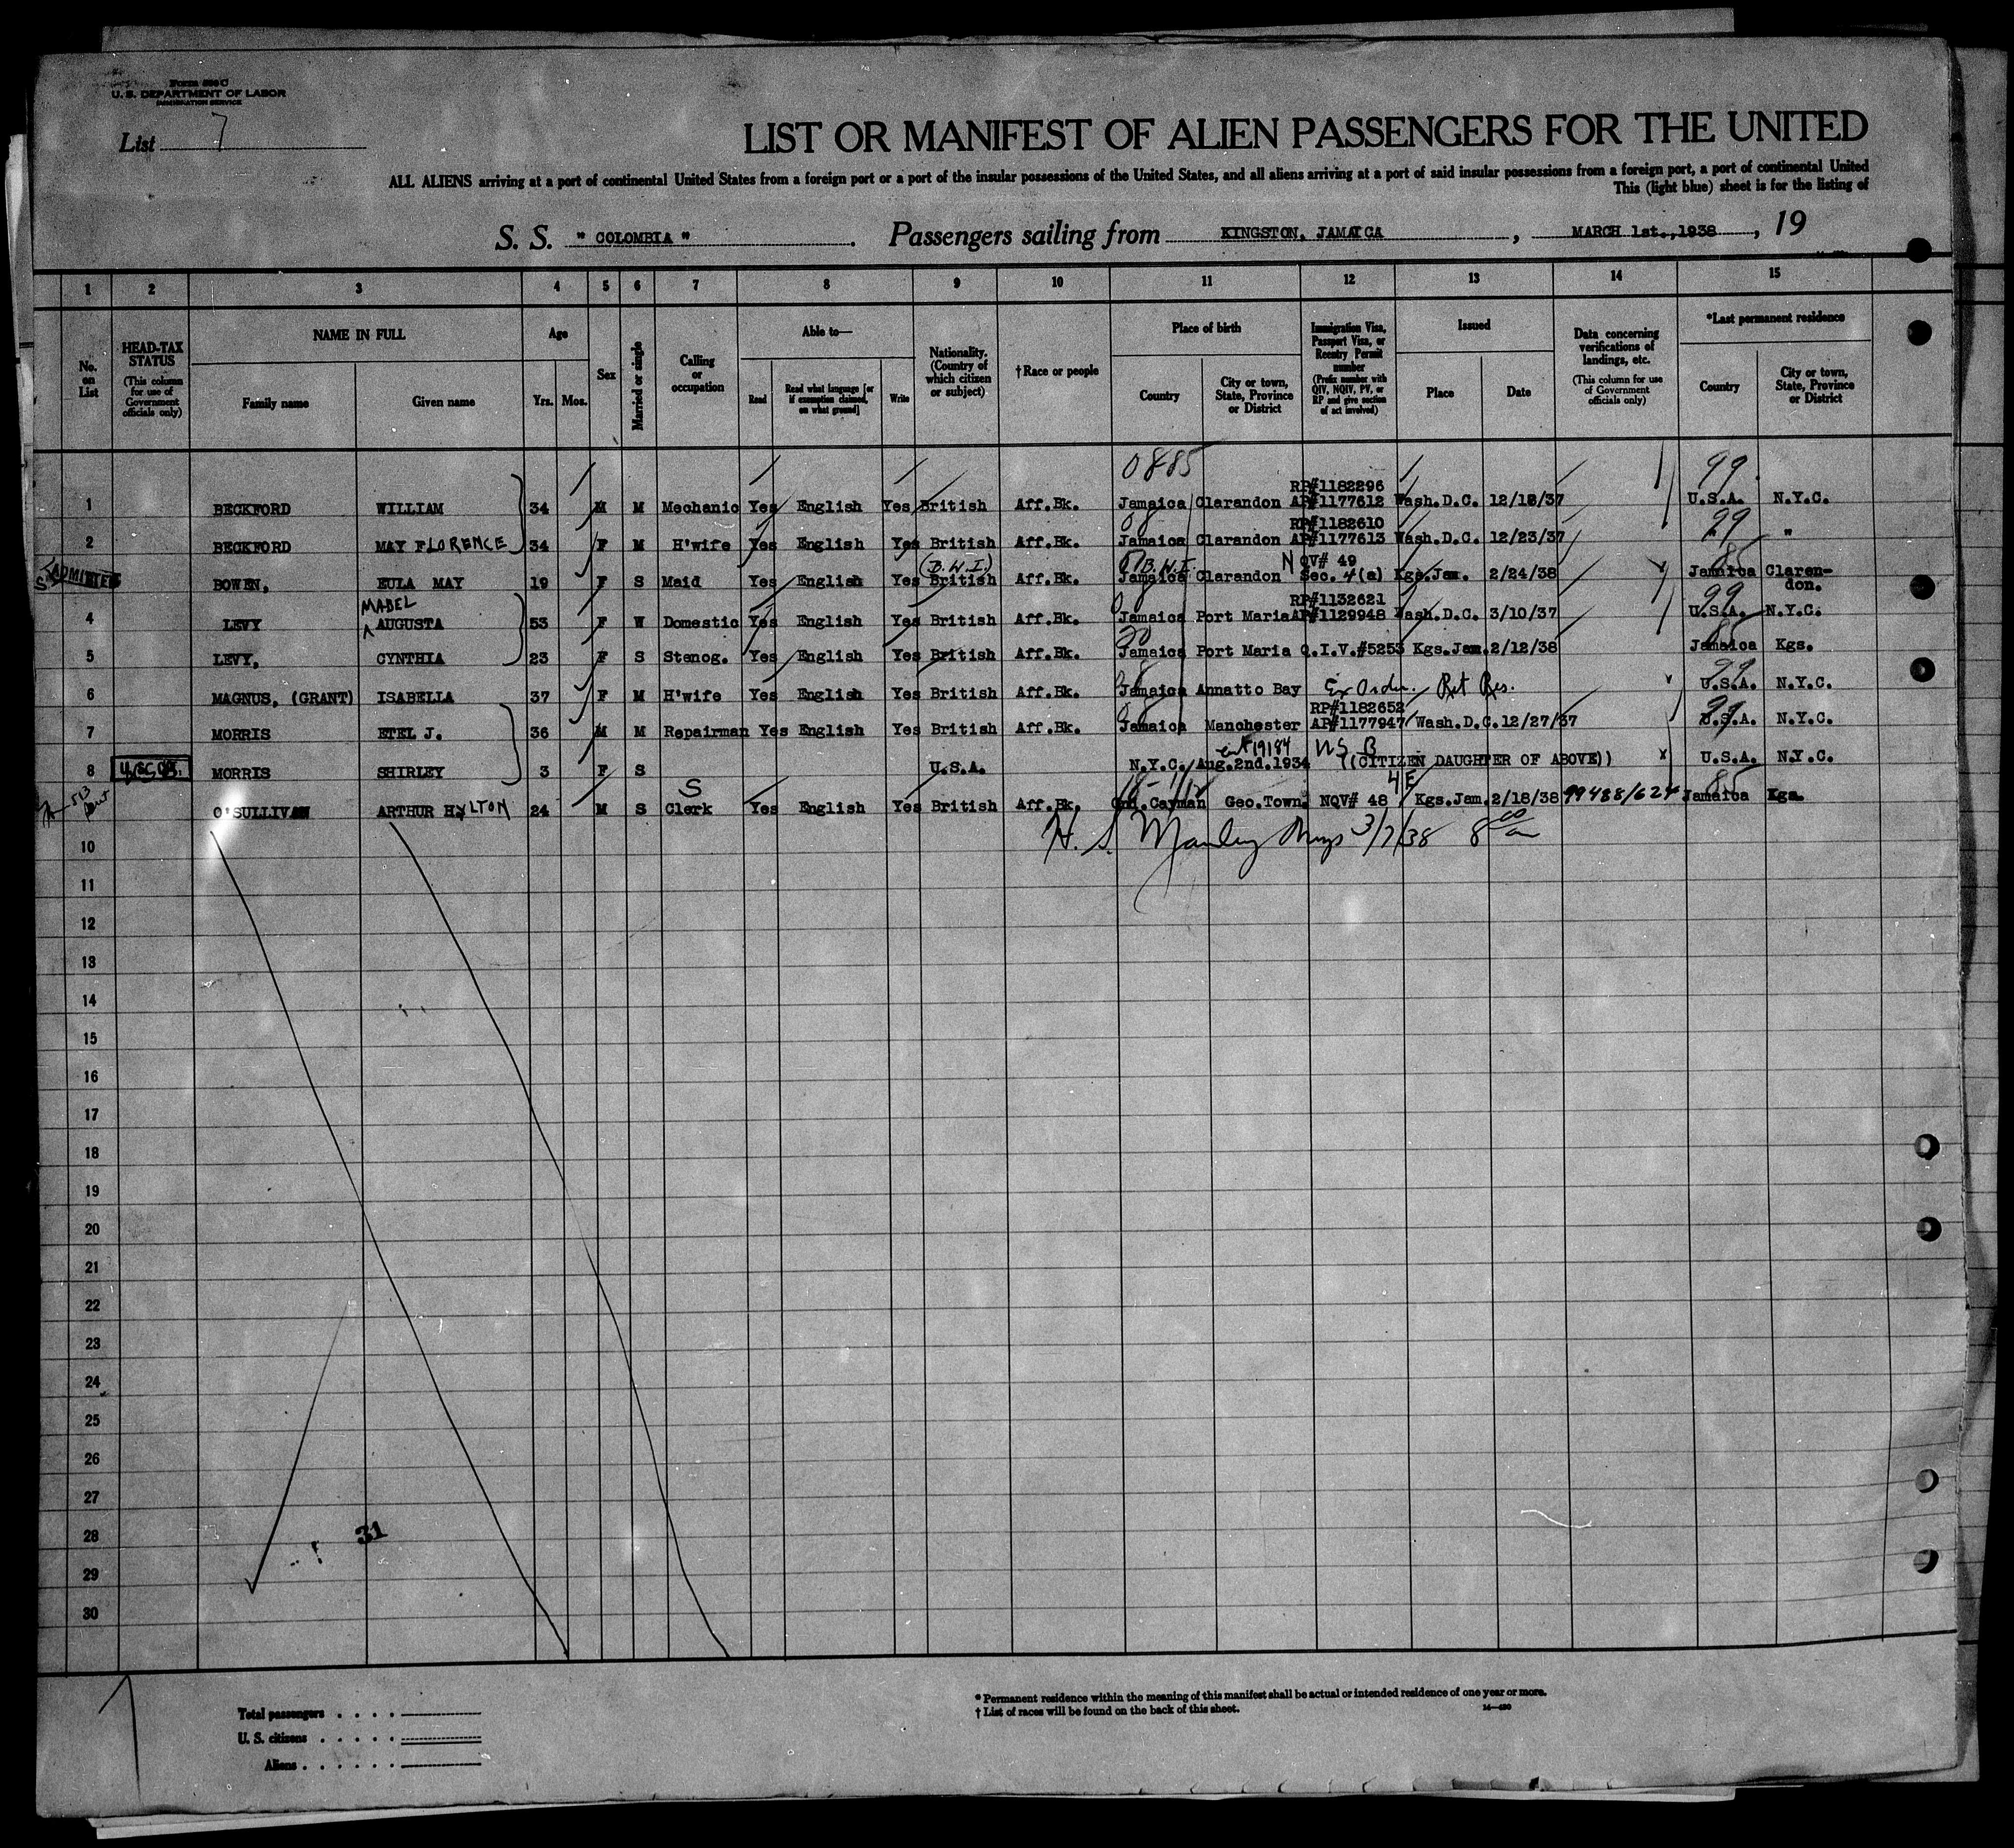 Form 500 C
U. S. DEPARTMENT OF LABOR
IMMIGRATION SERVICE
List 7
LIST OR MANIFEST OF ALIEN PASSENGERS FOR THE UNITED
ALL ALIENS arriving at a port of continental United States from a foreign port or a port of the insular possessions of the United States, and all aliens arriving at a port of said insular possessions from a foreign port, a port of continental United
This (light blue) sheet is for the listing of
S. S. " COLOMBIA " . Passengers sailing from KINGSTON, JAMAICA , MARCH 1st.,1938 , 19
1 2 3 4 5 6 7 8 9 10 11 12 13 14 15
No. on List
HEAD-TAX STATUS (This column for use of Government officials only)
NAME IN FULL
Family name Given name
Age
Yrs. Mos.
Sex
Married or single
Calling or occupation
Able to—
Read Read what language [or if exemption claimed, on what ground] Write
Nationality. (Country of which citizen or subject)
† Race or people
Place of birth
Country City or town, State, Province or District
Immigration Visa, Passport Visa, or Reentry Permit number (Prefix number with QIV, NQIV, PV, or RP and give section of act involved)
Issued
Place Date
Data concerning verifications of landings, etc. (This column for use of Government officials only)
*Last permanent residence
Country City or town, State, Province or District
0885 99
RP#1182296
1 BECKFORD WILLIAM 34 M M Mechanic Yes English Yes British Aff.Bk. Jamaica Clarandon AP#1177612 Wash.D.C. 12/18/37 U.S.A. N.Y.C.
RP#1182610 99
2 BECKFORD MAY FLORENCE 34 F M H'wife Yes English Yes British Aff.Bk. Jamaica Clarandon AP#1177613 Wash.D.C. 12/23/37 "
(B.W.I.) B.W.I. NQV# 49 85
ADMITTED BOWEN, EULA MAY 19 F S Maid Yes English Yes British Aff.Bk. Jamaica Clarandon Sec. 4(a) Kgs.Jam. 2/24/38 Jamaica Claren-don.
MABEL RP#1132621 99
4 LEVY AUGUSTA 53 F W Domestic Yes English Yes British Aff.Bk. Jamaica Port Maria AP#1129948 Wash.D.C. 3/10/37 U.S.A. N.Y.C.
85
5 LEVY, CYNTHIA 23 F S Stenog. Yes English Yes British Aff.Bk. Jamaica Port Maria Q.I.V.#5253 Kgs.Jam. 2/12/38 Jamaica Kgs.
99
6 MAGNUS, (GRANT) ISABELLA 37 F M H'wife Yes English Yes British Aff.Bk. Jamaica Annatto Bay Ex Order. Ret Res. U.S.A. N.Y.C.
RP#1182652 99
7 MORRIS ETEL J. 36 M M Repairman Yes English Yes British Aff.Bk. Jamaica Manchester AP#1177947 Wash.D.C. 12/27/37 U.S.A. N.Y.C.
19184 US B
8 MORRIS SHIRLEY 3 F S U.S.A. N.Y.C. Aug.2nd.1934 ((CITIZEN DAUGHTER OF ABOVE)) x U.S.A. N.Y.C.
S 4E 85
O'SULLIVAN ARTHUR HYLTON 24 M S Clerk Yes English Yes British Aff.Bk. Gnd.Cayman Geo.Town. NQV# 48 Kgs.Jam. 2/18/38 99488/624 Jamaica Kgs.
10 H. S. Manley 3/7/38 8 00 am
11
12
13
14
15
16
17
18
19
20
21
22
23
24
25
26
27
28 31
29
30
Total passengers
U. S. citizens
Aliens
* Permanent residence within the meaning of this manifest shall be actual or intended residence of one year or more.
† List of races will be found on the back of this sheet.